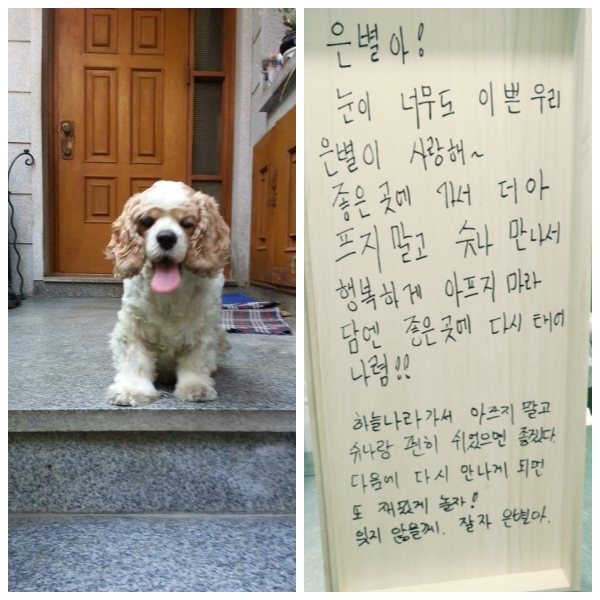 은별아!
눈이 너무도 이쁜 우리
은별이 사랑해~
좋은 곳에 가서 더 아
프지 말고 슈나 만나서
행복하게 아프지 마라
담엔 좋은곳에 다시 태어
나렴!!
하늘나라가서 아프지 말고
슈나랑 편히 쉬었으면 좋겠다.
다음에 다시 만나게 되면
또 재밌게 놀자!
잊지 않을께. 잘자 은별아.